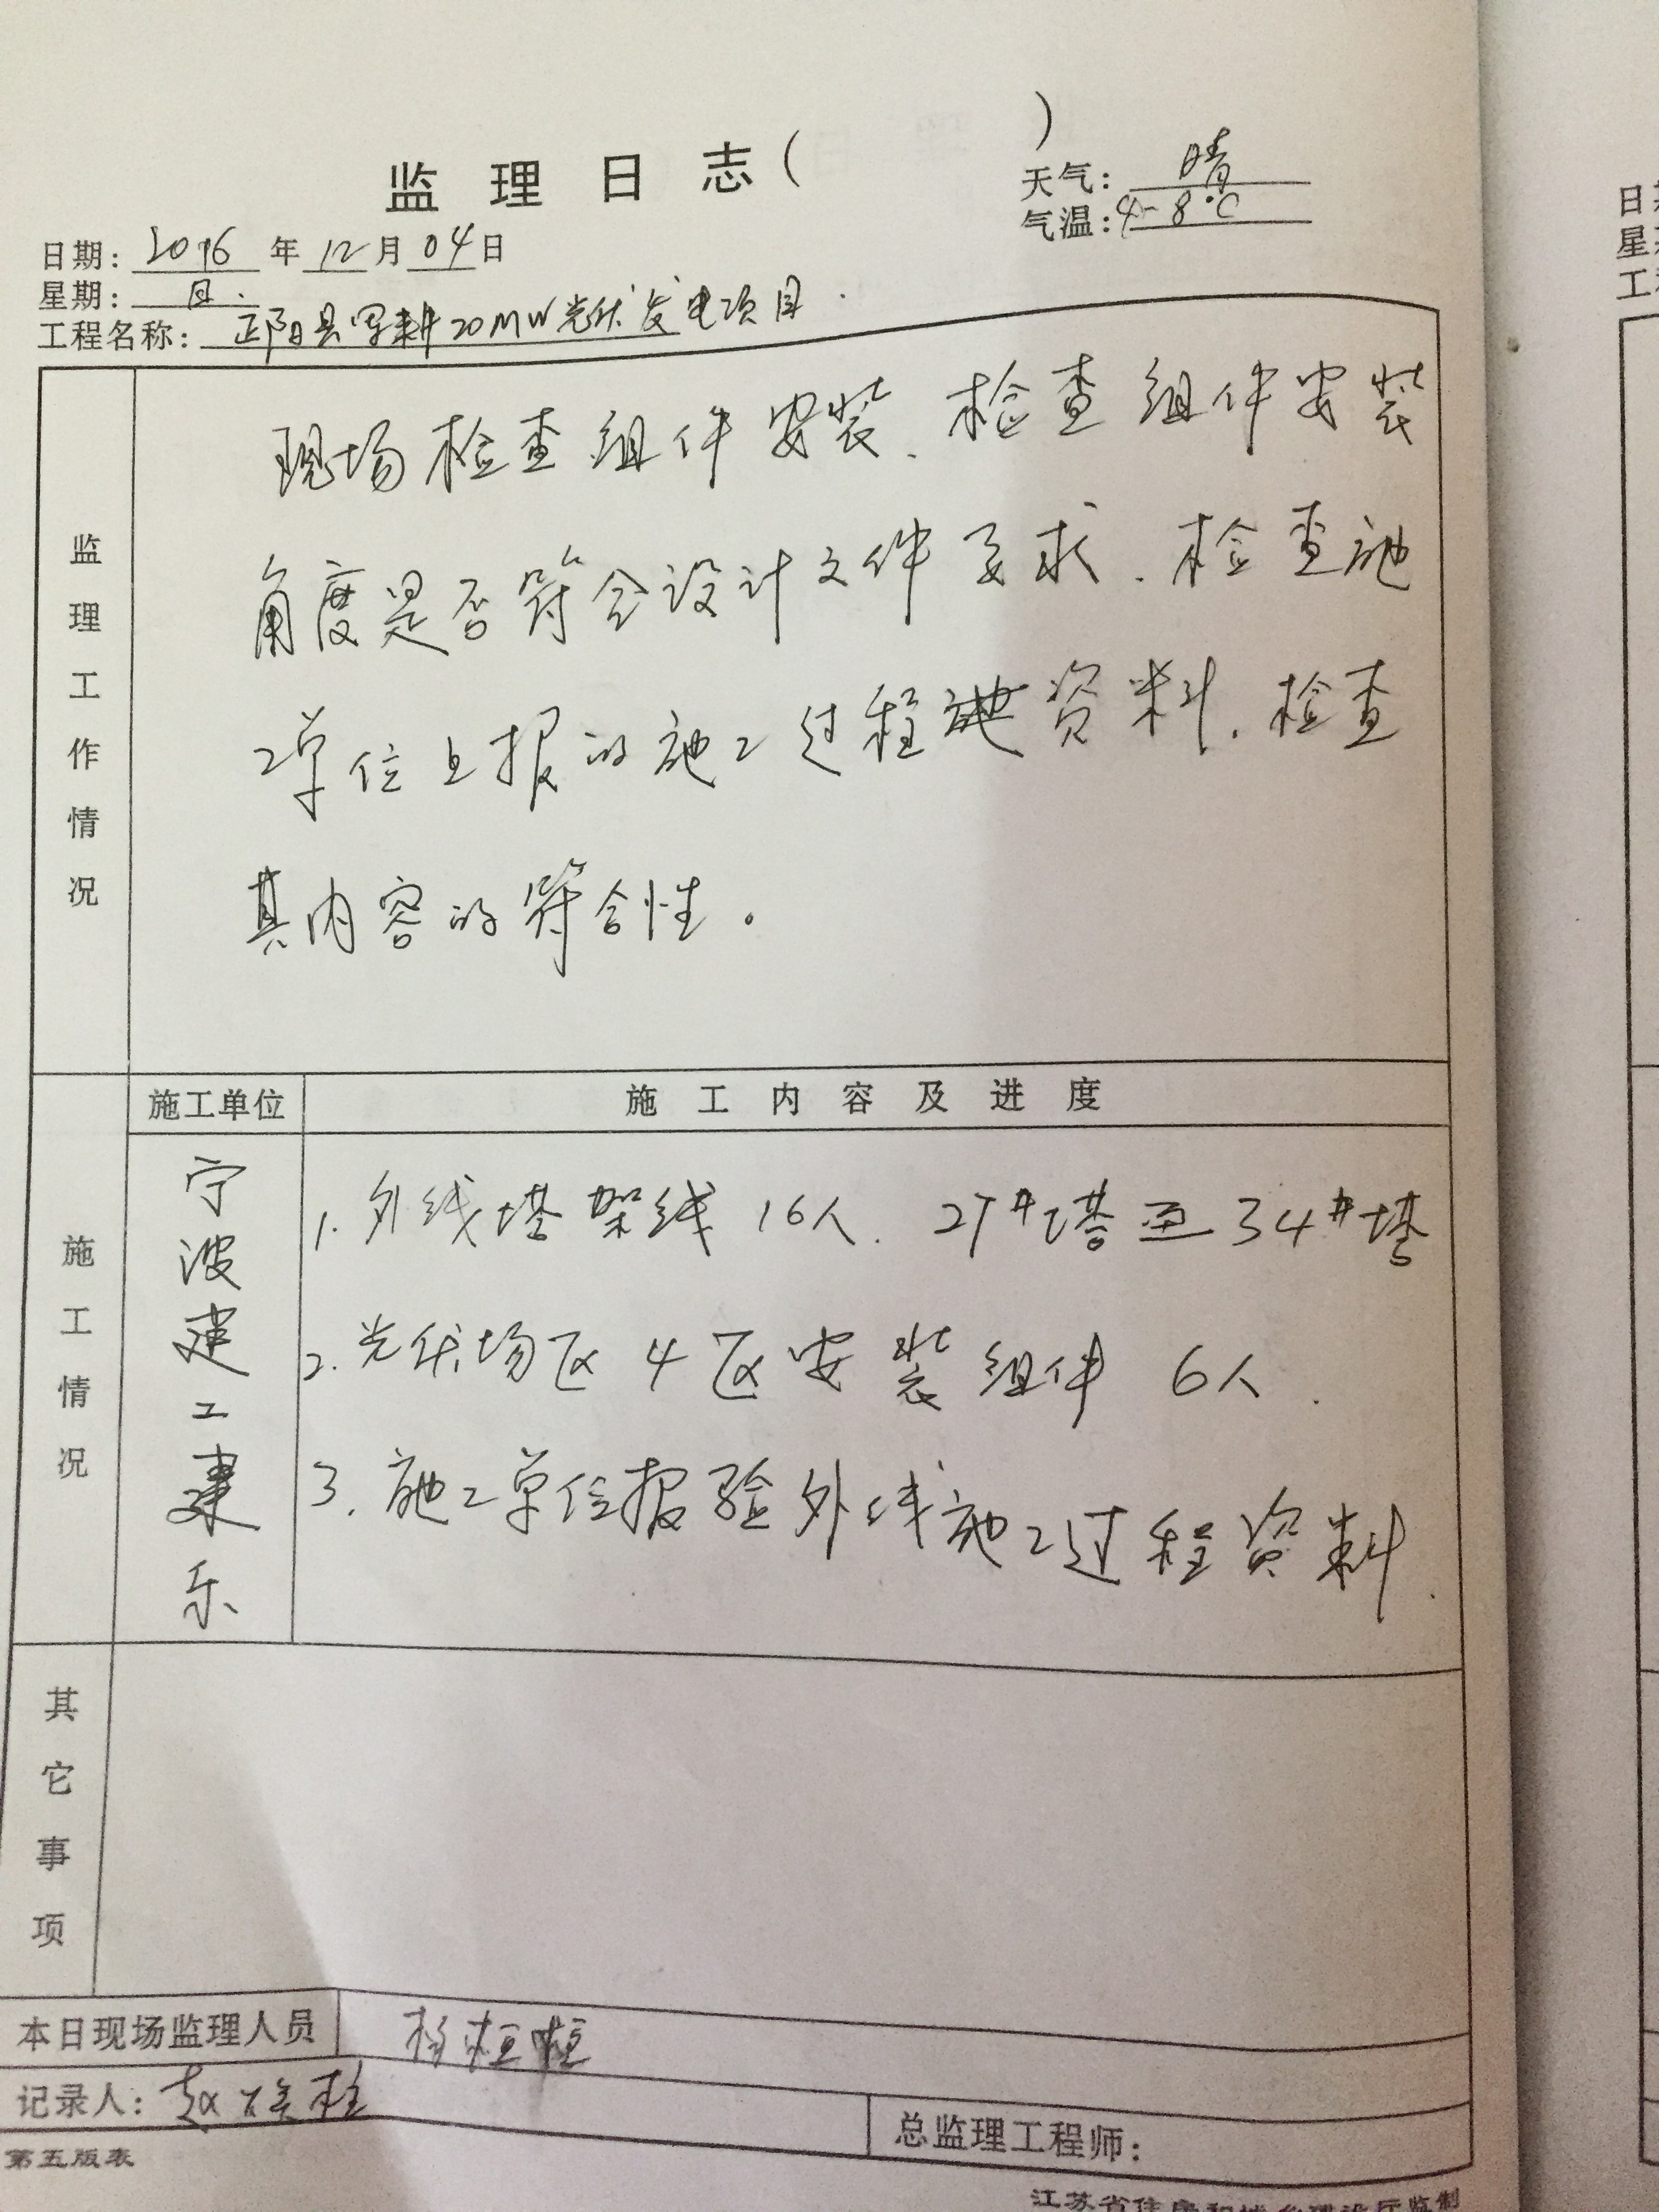 监理日志( )
天气：晴
气温：4-8℃
日期：2016年12月04日
星期：日.
工程名称：正阳县军耕20MW光伏发电项目.
监理工作情况
现场检查组件安装、检查组件安装
角度是否符合设计文件要求.检查施
工单位上报的施工过程资料.检查
其内容的符合性。
施工情况
施工单位
施工内容及进度
宁波建工建乐
1.外线塔架线 16人. 27#塔至34#塔
2.光伏场区 4区安装组件 6人.
3.施工单位报验外线施工过程资料.
其它事项
本日现场监理人员
记录人：赵
总监理工程师：
第五版表
江苏省住房和城乡建设厅监制
日
星
工